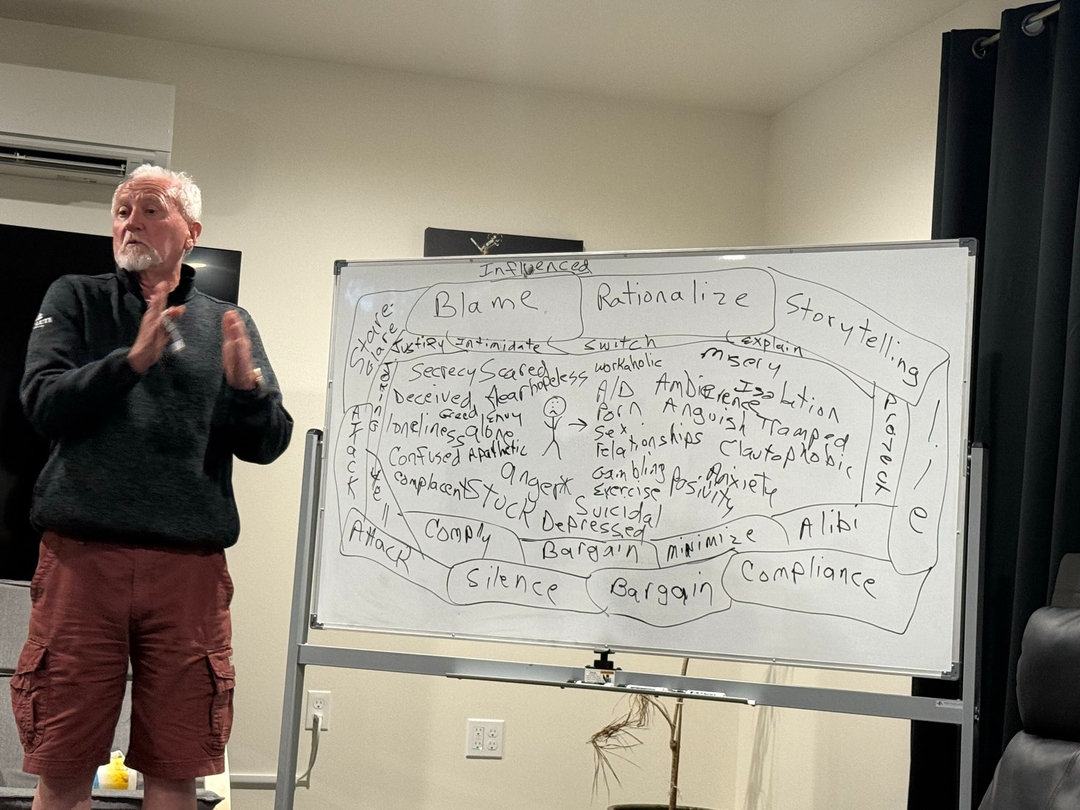 Influenced
Blame
Rationalize
Storytelling
Square
Justify
Intimidate
switch
explain
Secrecy Scared hopeless
workaholic
misery
Deceived fear
A/D
Isolation
Greed Envy
Porn
Anguish
loneliness alone
Sex
Relationships
Confused Apathetic
Claustophobic
complacent
Anger
Gambling
Anxiety
STUCK
exercise
Suicidal
Depressed
Attack
Yell
Provock
Lie
Attack
Comply
Bargain
minimize
Alibi
Silence
Bargain
Compliance